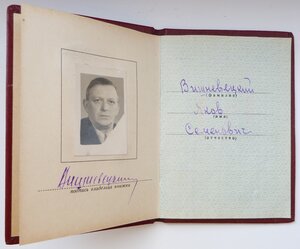 Вишневецкий
(фамилия)
Яков
(имя)
Семенович
(отчество)
Вишневецкий
подпись владельца книжки